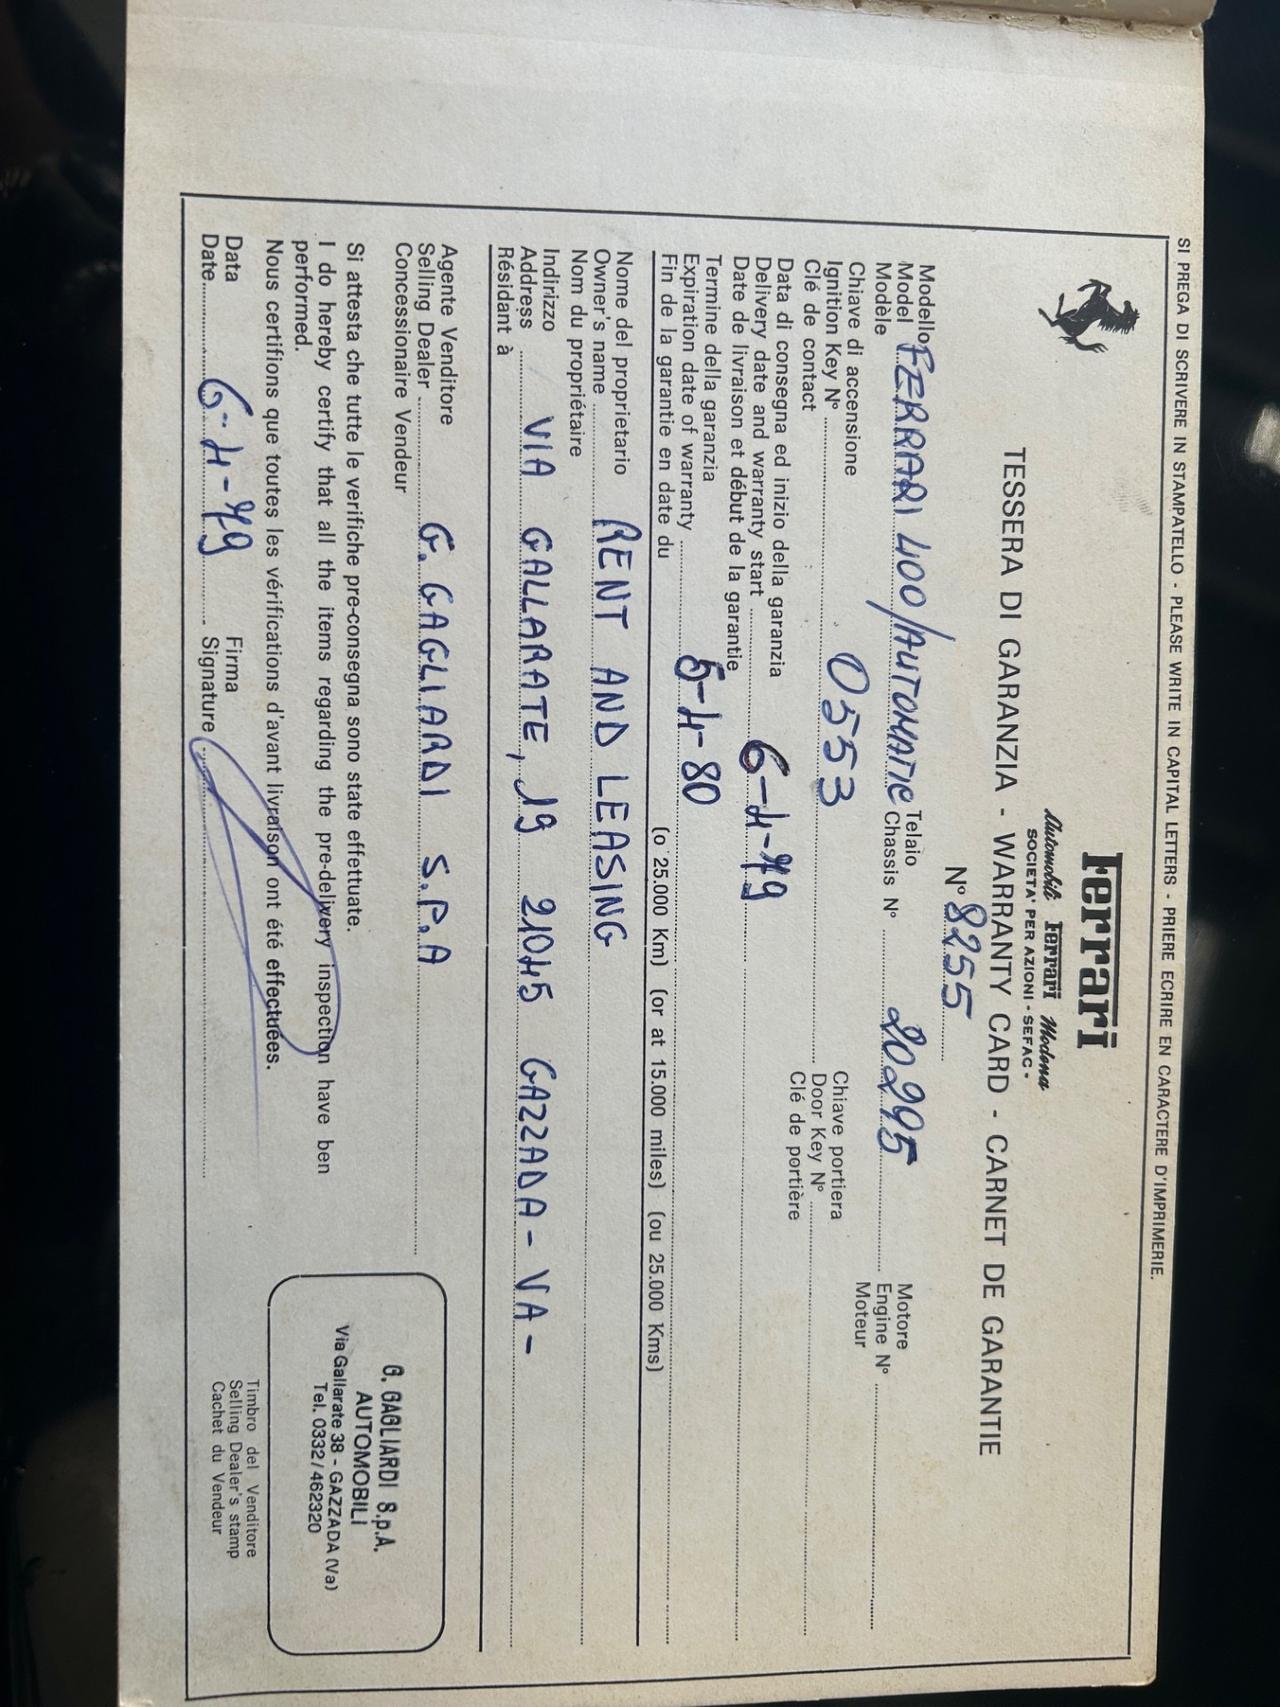 SI PREGA DI SCRIVERE IN STAMPATELLO - PLEASE WRITE IN CAPITAL LETTERS - PRIERE ECRIRE EN CARACTERE D'IMPRIMERIE.
Ferrari
Automobili Ferrari Modena
SOCIETA' PER AZIONI - SEFAC -
TESSERA DI GARANZIA - WARRANTY CARD - CARNET DE GARANTIE
N° 8255
Modello
Model FERRARI 400/AUTOMATIC
Modèle
Telaio
Chassis N° 20295
Motore
Engine N°
Moteur
Chiave di accensione
Ignition Key N° 0553
Clé de contact
Chiave portiera
Door Key N°
Clé de portière
Data di consegna ed inizio della garanzia
Delivery date and warranty start 6-4-79
Date de livraison et début de la garantie
Termine della garanzia
Expiration date of warranty 5-4-80
Fin de la garantie en date du
(o 25.000 Km) (or at 15.000 miles) (ou 25.000 Kms)
Nome del proprietario
Owner's name RENT AND LEASING
Nom du propriétaire
Indirizzo
Address VIA GALLARATE, 19 21045 GAZZADA - VA -
Résidant à
Agente Venditore
Selling Dealer G. GAGLIARDI S.P.A
Concessionaire Vendeur
Si attesta che tutte le verifiche pre-consegna sono state effettuate.
I do hereby certify that all the items regarding the pre-delivery inspection have ben
performed.
Nous certifions que toutes les vérifications d'avant livraison ont été effectuées.
Data
Date 6-4-79
Firma
Signature
G. GAGLIARDI S.p.A.
AUTOMOBILI
Via Gallarate 38 - GAZZADA (Va)
Tel. 0332/462320
Timbro del Venditore
Selling Dealer's stamp
Cachet du Vendeur